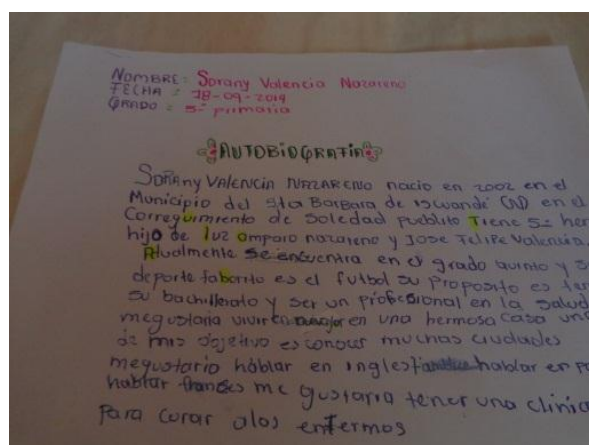 NOMBRE: Sorany Valencia Nazareno
FECHA: 18-09-2019
GRADO: 5-º primaria
AUTOBIOGRAFIA
SORANY VALENCIA NAZARENO nacio en 2002 en el
Municipio del Sta Barbara de Iscuandé (N) en el
Correguimiento de Soledad pueblito Tiene 5- her
hijo de luz amparo nazareno y Jose Felipe Valencia.
Atualmente se encuentra en el grado quinto y s
deporte faborito es el futbol su proposito es ter
su bachillerato y ser un profecional en la salud
megustaria vivir en en una hermosa casa un
de mis objetivo es conocer muchas ciudades
megustario hablar en ingles hablar en po
hablar frances me gustaria tener una clinica
Para curar alos enfermos